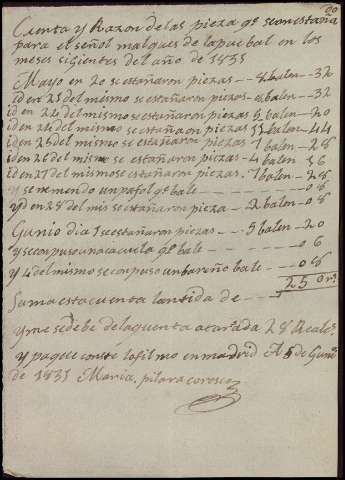 20
Cuenta y Razon de las pieza qe se an estaña
para el señol malques de la puebal en los
meses sigientes del año de 1835
Mayo en 20 se estañaron piezas — 8 balen — 32
id en 21 del mismo se estañaron piezas — 8 balen — 32
id en 22 del mismo se estañaron piezas 5 balen — 20
id en 24 del mismo se estañaron piezas 11 balen — 44
id en 25 del mismo se estañaron piezas 7 balen — 28
id en 26 del mismo se estañaron piezas — 4 balen 16
id en 27 del mismo se estañaron piezas. 7 balen — 28
y se remendo un pafol qe bale — 08
yd en 28 del mis se estañaron pieza — 2 balen — 08
Gunio dia 1 se estañaron piezas — 5 balen — 20
y se conpuso una caçuela qe bale — 06
y 4 del mismo se conpuso un bareño bale — 08
250 rs
Suma esta cuenta la ntida de —
y me se debe de la quenta atarada 28 Reales
y pa qe conste lo filmo en madrid A 5 de Guni
de 1835 Maria pilara corosco